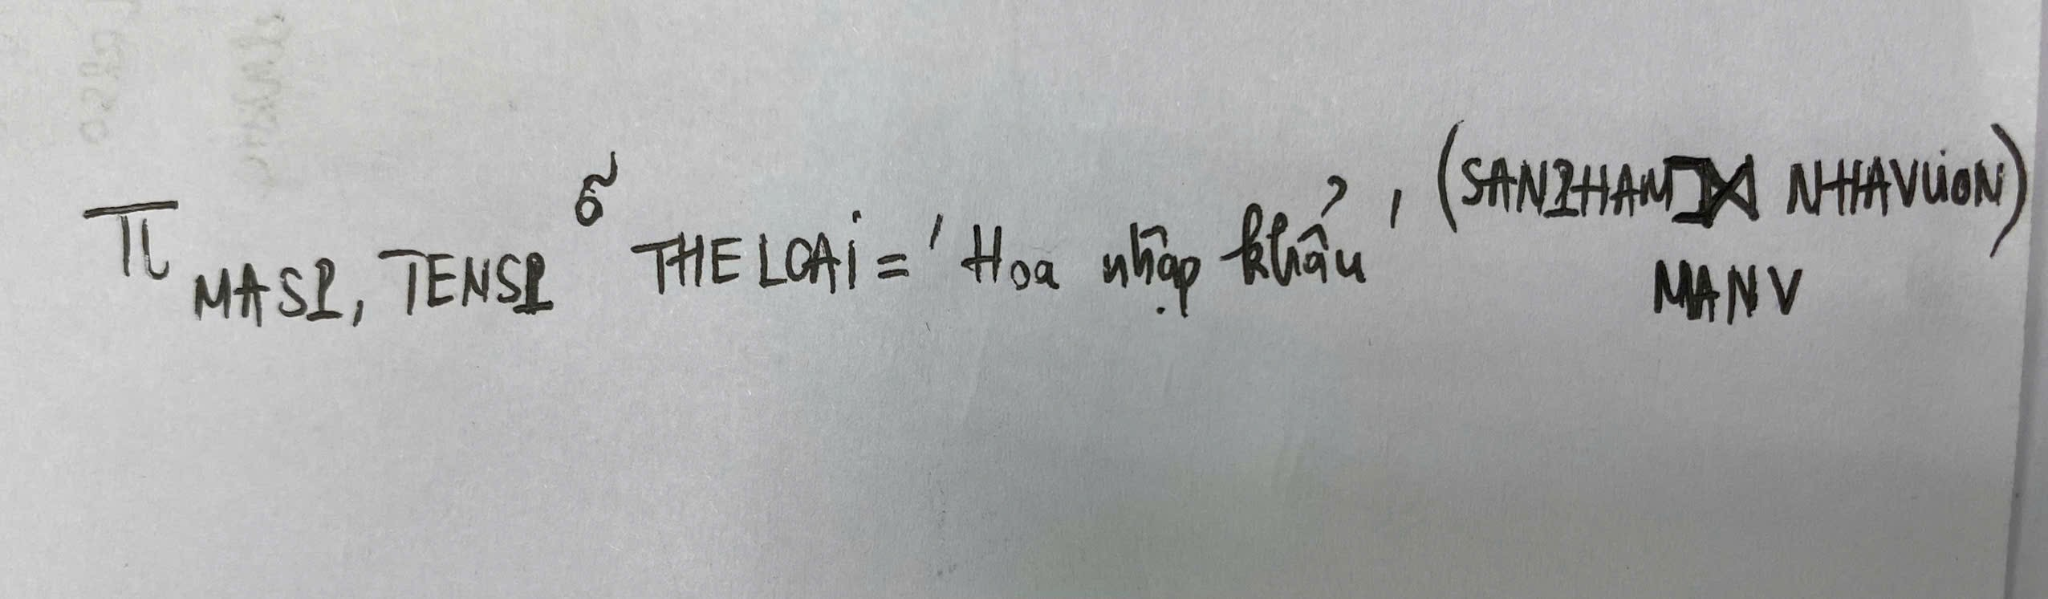 π MASP, TENSP σ THELOAI = 'Hoa nhập khẩu' (SANPHAM ⟕ NHAVUON)
MANV